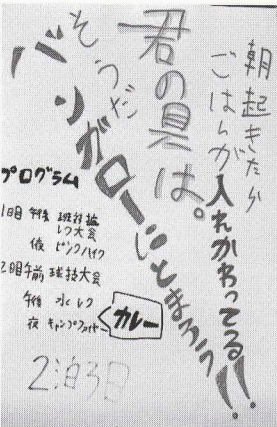 朝起きたら
ごはんが入れかわってる!!
君の具は。
そうだ
バンガローにとまろう!!
プログラム
1日目 午後 班対抗
レク大会
夜 ピンクハイク
2日目 午前 球技大会
午後 水レク
夜 キャンプファイヤー
カレー
2泊3日